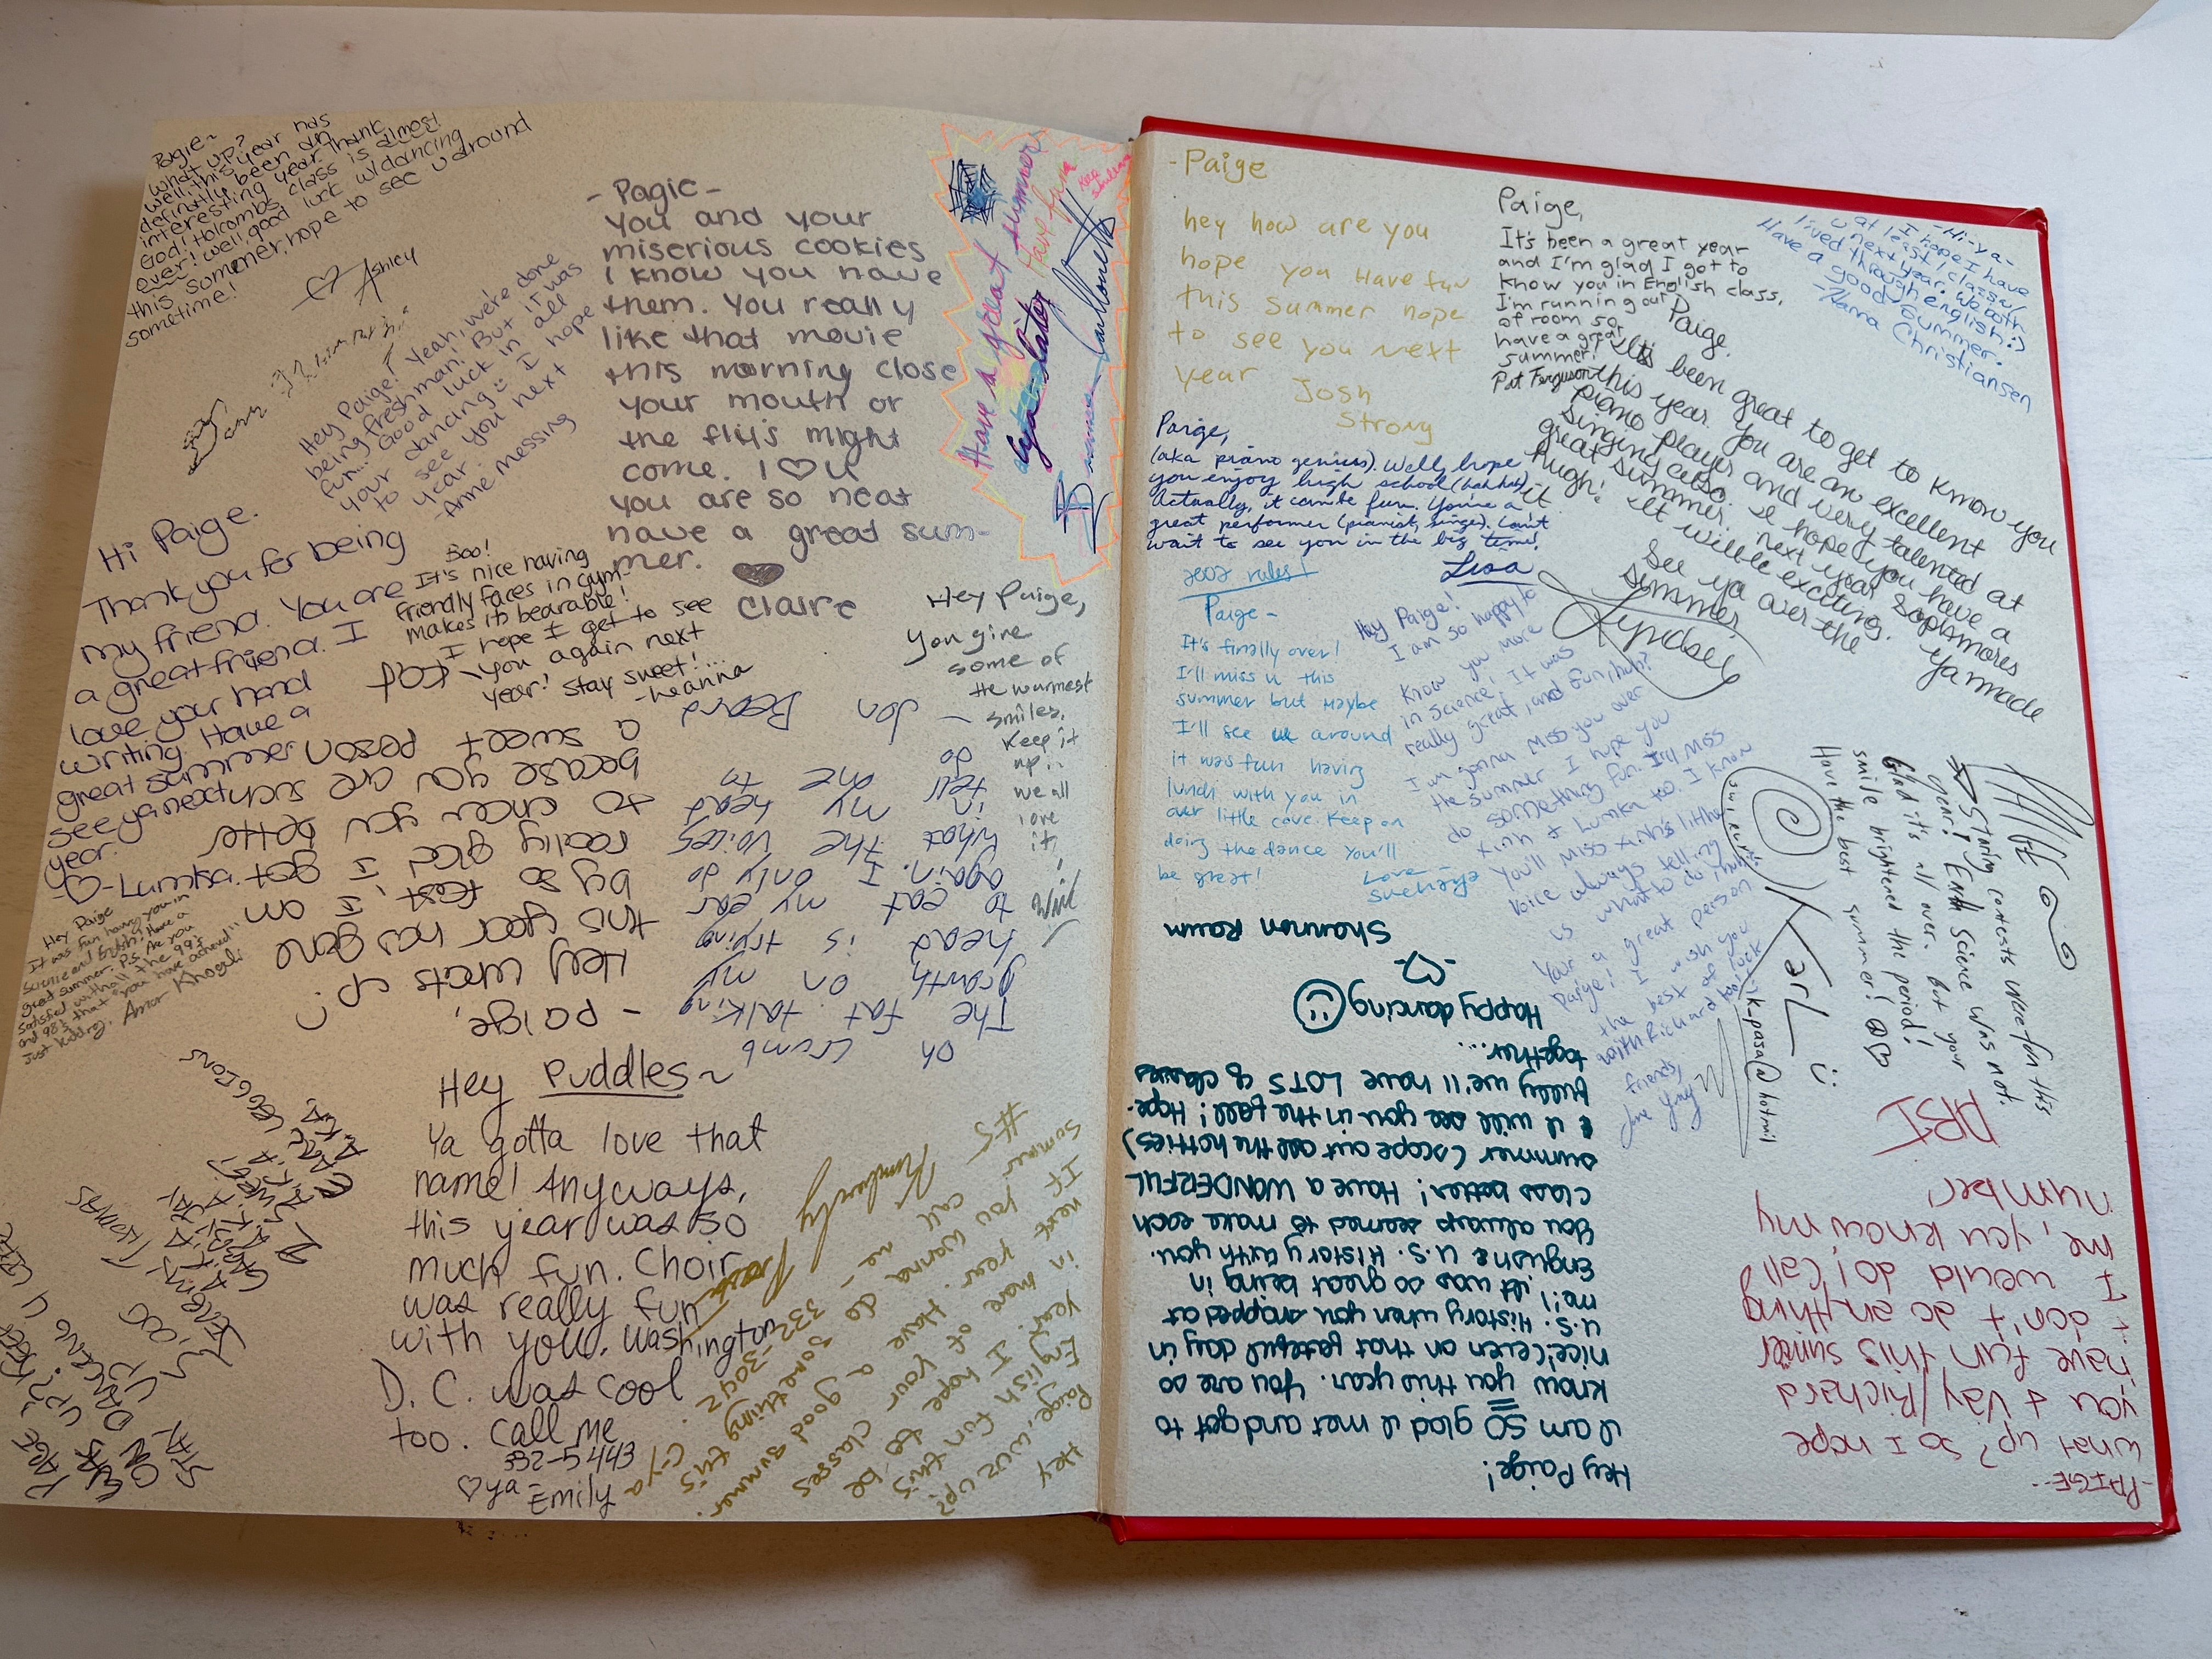 Pagie~
What up?
Well, this year has
definatly been an
interesting year. Thank
God! Holcombs class is almost
over! well, good luck w/dancing
this sommer, hope to see u around
sometime!
♡ Ashley
Hey Paige! Yeah, we're done
being freshman! But it was
fun... Good luck in all
your dancing :) I hope
to see you next
year.
-Anne Messing
-Pagie-
You and your
miserious cookies
I know you have
them. You really
like that movie
this morning close
your mouth or
the fliy's might
come. I ♡ U
you are so neat
have a great sum-
mer.
Claire
Have a great summer
Have fun
cya later
Hi Paige.
Thank you for being
my friend. You are
a great friend. I
love your hand
writing. Have a
great summer.
see ya next
year.
♡-Lumka.
Boo!
It's nice having
friendly faces in gym-
makes it bearable!
I hope I get to see
you again next
year! Stay sweet!...
-Leanna
Hey Paige,
You give
some of
the warmest
smiles.
Keep it
up..
we all
love
it!
Will
- Paige,
Hey whats up?
this year has gone
by so fast, I am
really glad I got
to know you better
because you are such
a sweet person
Oh crumb
The fat talking
growth on my
head is trying
to eat my ear
again. I only do
what the voices
in my head
tell me to
do
- Jon Beard
Hey Paige
It was fun having you in
science and English. Have a
great summer. P.S. Are you
satisfied with all the 99's
and 98's that you have achieved"
Just kidding. Amar Khogali
Hey Puddles~
Ya gotta love that
name! Anyways,
this year was so
much fun. Choir
was really fun
with you. Washington
D.C. was cool
too. Call me
332-5443
♡ ya -
Emily
Hey
Paige, wuz up?
English fun this
year. I hope to be
in more of your classes
next year. Have a good summer
If you wanna do something this
summer call me - 332-3092. C-ya
Kimberly
#5
-Paige
hey how are you
hope you have fun
this Summer hope
to see you next
year Josh
Strong
Paige,
It's been a great year
and I'm glad I got to
know you in English class,
I'm running out
of room so,
have a great
summer!
Pat Ferguson
-Hi-ya-
I hope I have
at least 1 class w/
u next year. We both
lived through english :)
Have a good summer.
-Hanna Christiansen
Paige,
(aka piano genius). Well, hope
you enjoy high school (hah hah)
Actually, it can be fun. You're a
great performer (pianist, singer). Can't
wait to see you in the big time!
Lisa
Paige.
It's been great to get to know you
this year. You are an excellent
piano player and very talented at
singing also. I hope you have a
great summer. next year Sophmores
hugh! It will be exciting. Ya made
it
See ya over the
summer.
Lyndsey
2002 rules!
Paige-
It's finally over!
I'll miss u this
summer but maybe
I'll see u around
it was fun having
lunch with you in
our little cave. Keep on
doing the dance you'll
be great!
Love
Hey Paige!
I am so happy to
know you more
in science! It was
really great, and fun, huh?
I am gonna miss you over
the summer. I hope you
do something fun. I'll miss
Xinh & Lumka to. I know
you'll miss Xinh's little
voice always telling
us what to do, huh?
Your a great person
Paige! I wish you
the best of luck
with Richard too!
friends,
PAIGE
Staring contests were fun this
year! Earth Science was not.
Glad it's all over. But your
smile brightened the period!
Have the best summer!
KarL :)
k-pasa@hotmil
Hey Paige!
I am SO glad I met and got to
know you this year. You are so
nice! (even on that fateful day in
U.S. History when you snapped at
me!) It was so great being in
English & U.S. History with you.
You always seemed to make each
class better! Have a WONDERFUL
summer (scope out all the hotties)
& I will see you in the fall! Hope-
fully we'll have LOTS of classes
together...
Happy dancing
-♡-
Shannon Raum
-PAIGE-
what up? So I hope
you & Vay/Richard
have fun this sumer
& don't do anything
I would do! Call
me, you know my
number,
ARI